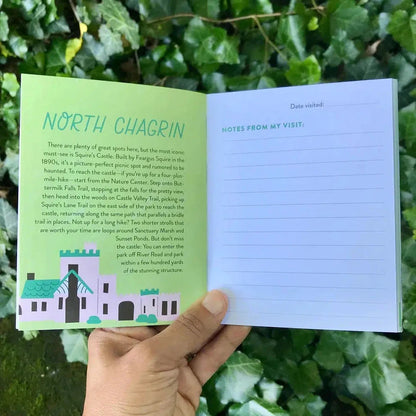 NORTH CHAGRIN
There are plenty of great spots here, but the most iconic
must-see is Squire's Castle. Built by Feargus Squire in the
1890s, it's a picture-perfect picnic spot and rumored to be
haunted. To reach the castle—if you're up for a four-plus-
mile-hike—start from the Nature Center. Step onto But-
termilk Falls Trail, stopping at the falls for the pretty view,
then head into the woods on Castle Valley Trail, picking up
Squire's Lane Trail on the east side of the park to reach the
castle, returning along the same path that parallels a bridle
trail in places. Not up for a long hike? Two shorter strolls that
are worth your time are loops around Sanctuary Marsh and
Sunset Ponds. But don't miss
the castle: You can enter the
park off River Road and park
within a few hundred yards
of the stunning structure.
Date visited:
NOTES FROM MY VISIT: